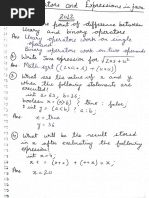 Operators and Expressions in java
Quiz
point of difference between
Unary and binary operators
Ans Unary operators work on single
operand
Binary operators work on two operands
Write Java expression for √2as+u²
Ans Math.sqrt ((2*a*s) + (u*u))
What are the value of x and y
when the following statements are
executed?
int a = 63, b = 36;
boolean x = (a>b) ? true : false;
int y = (a<b) ? a : b;
Ans x = true
What will be the result stored
in x after evaluating the following
expression?
int x = 4;
x += (x++) + (++x) + x;
Ans x = 20